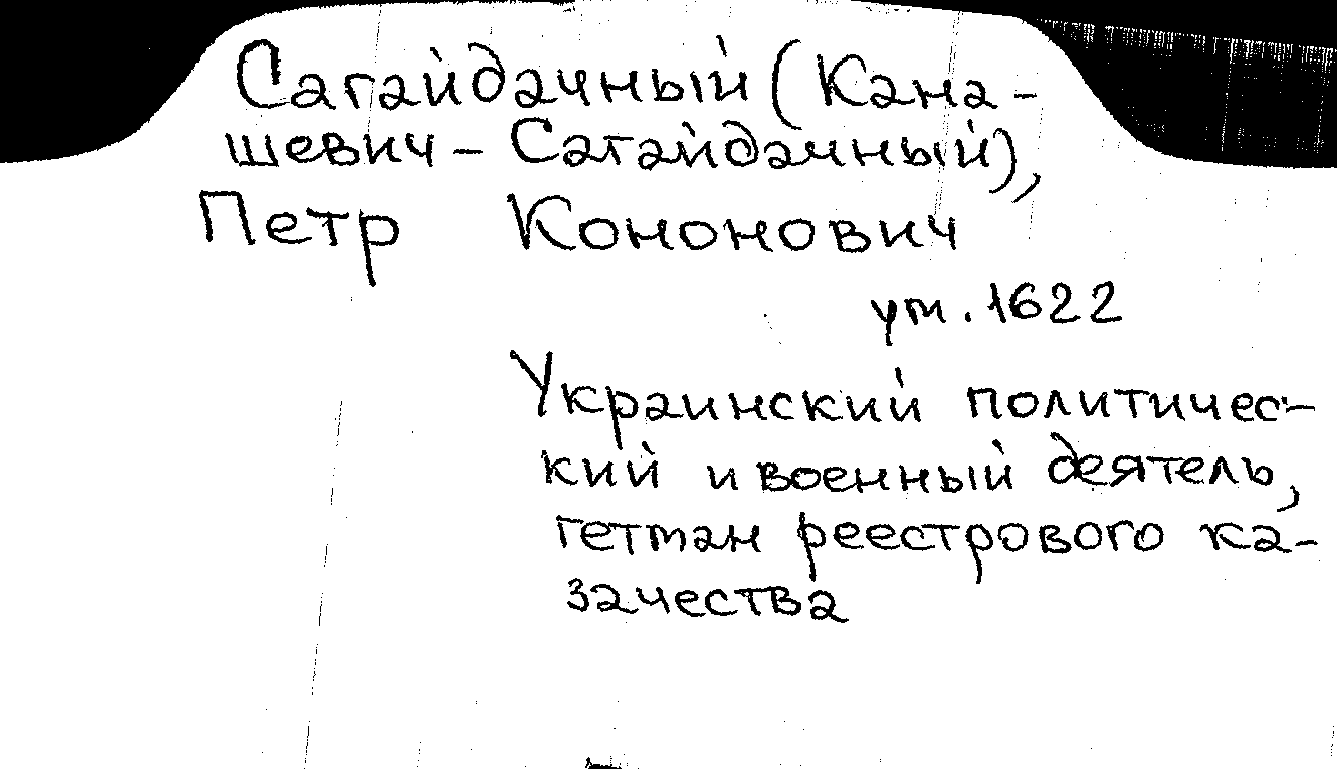 Сагайдачный (Кана-
шевич - Сагайдачный),
Петр Кононович
ум. 1622
Украинский политичес-
кий и военный деятель,
гетман реестрового ка-
зачества